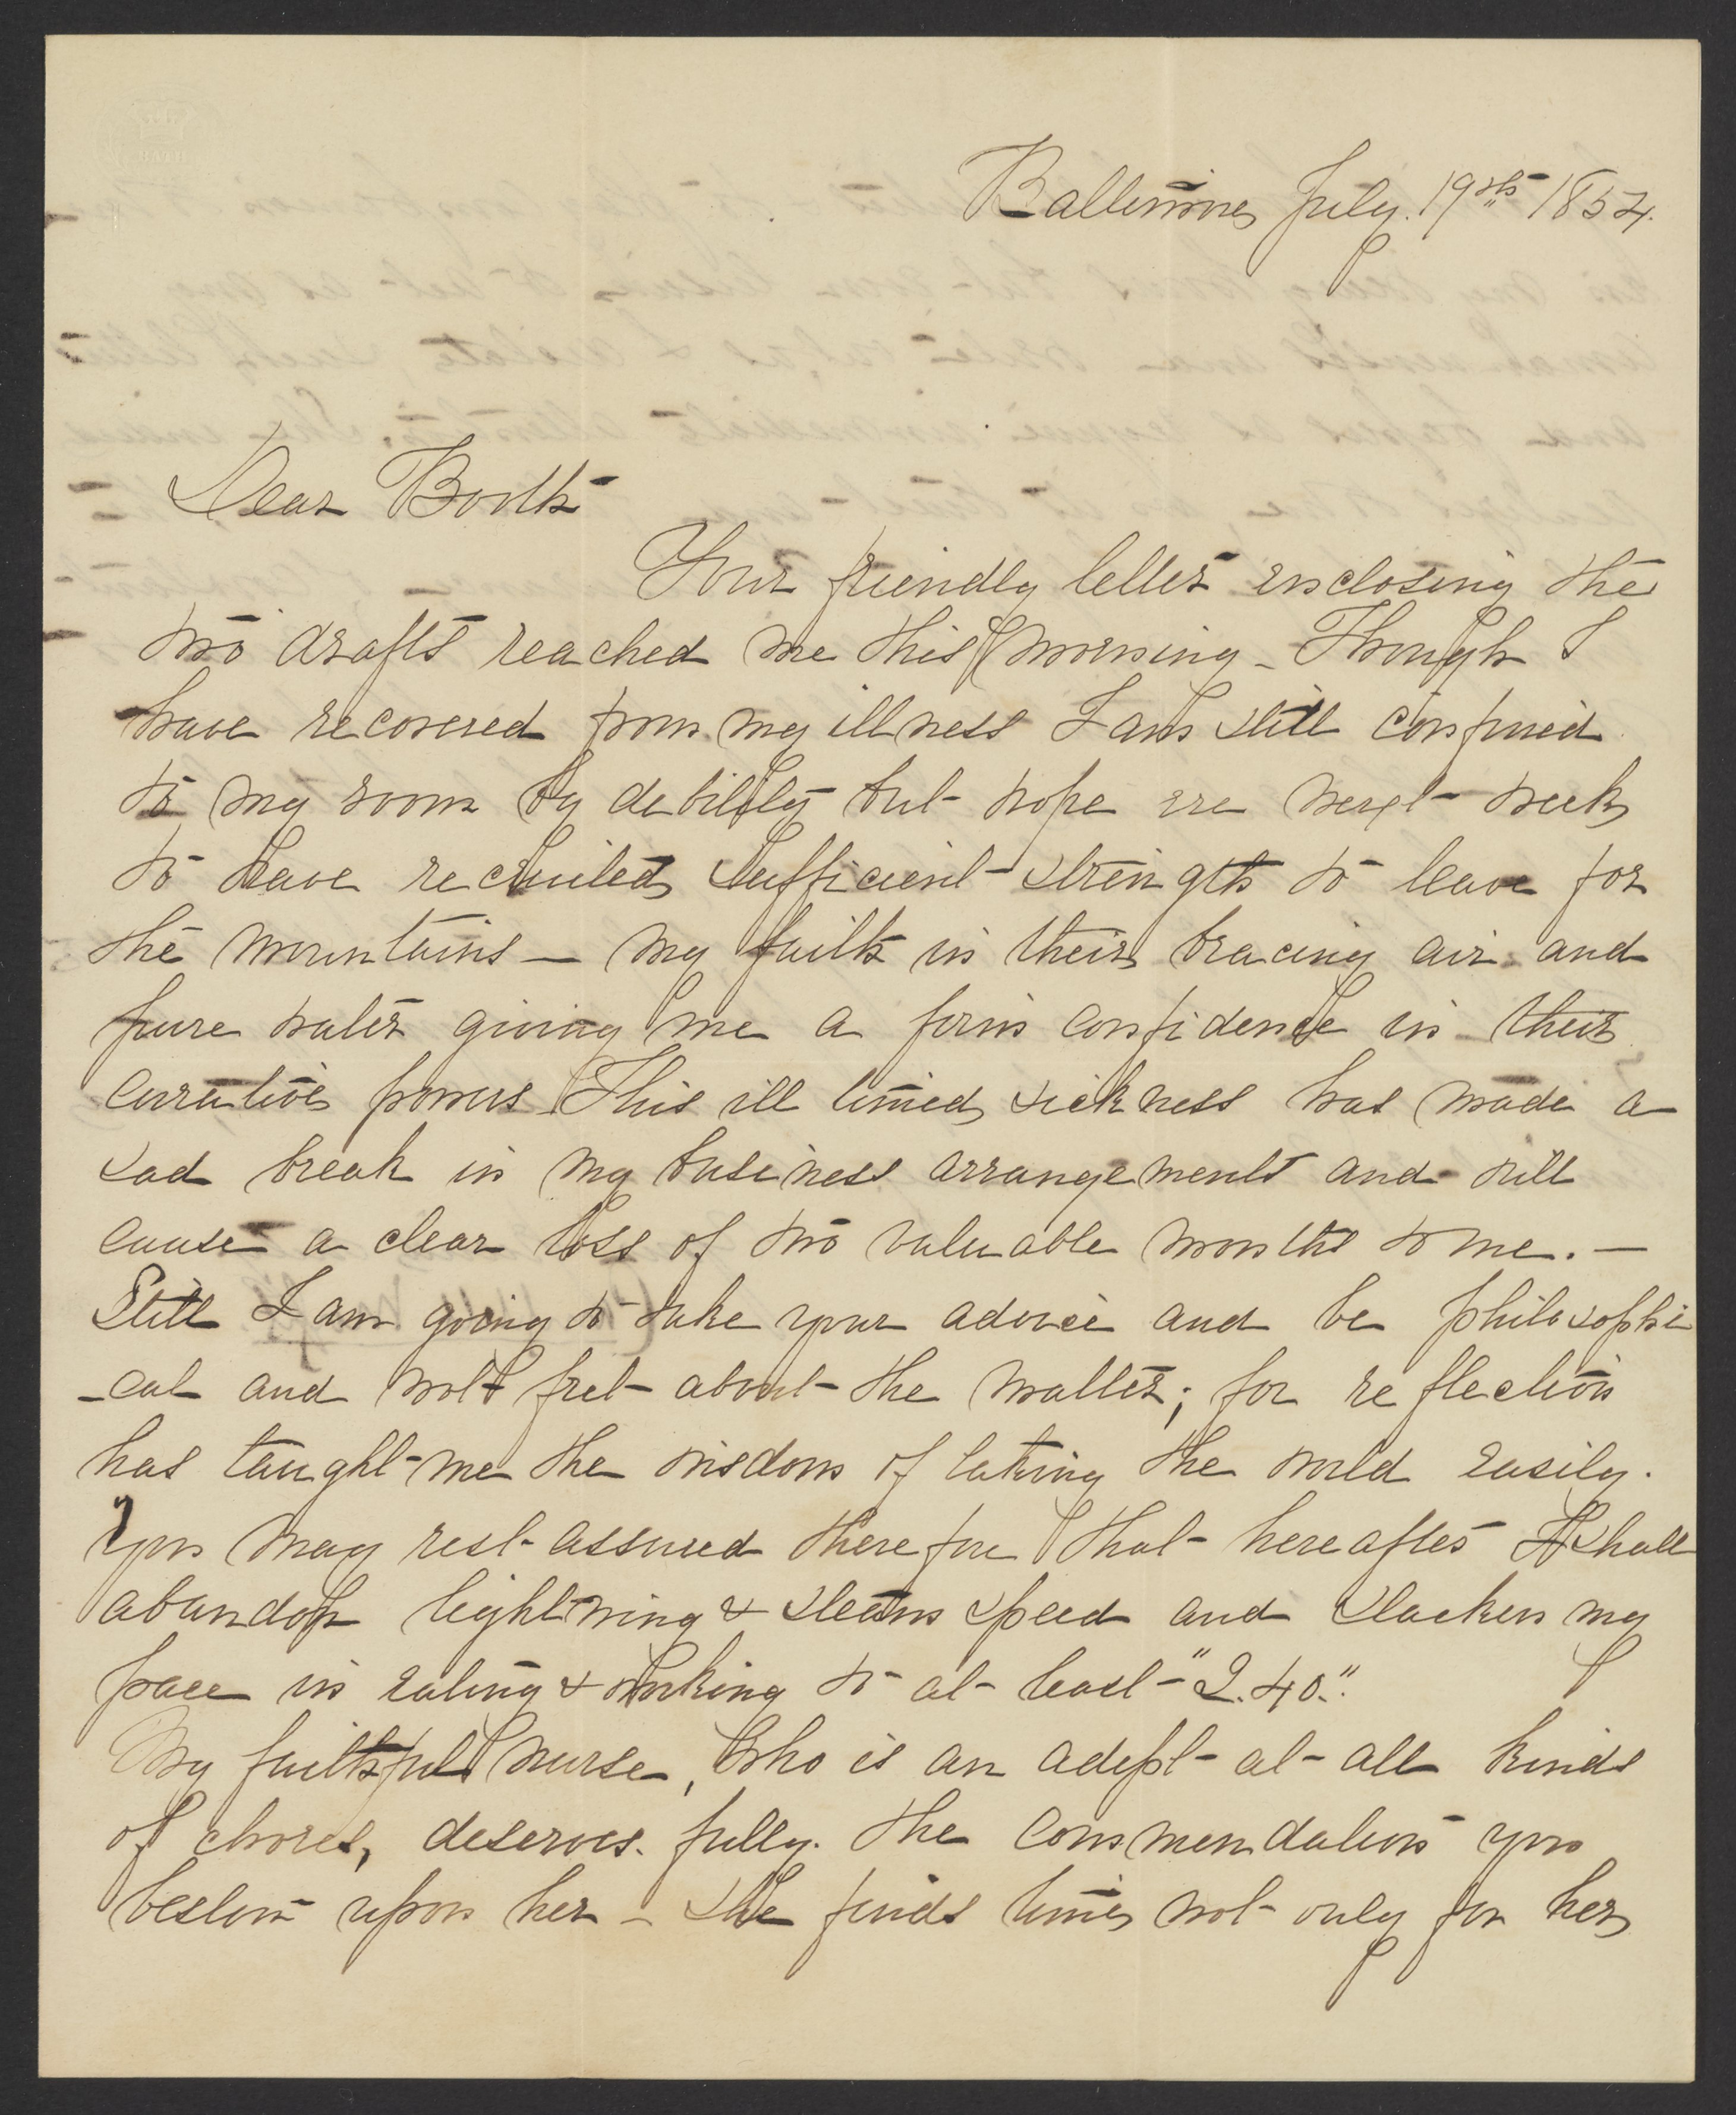 Baltimore July. 19th 1854.
Dear Booth
Your friendly letter enclosing the
two drafts reached me this morning - Though I
have recovered from my illness I am still confined
to my room by debility but hope ere next week
to have recruited sufficient strength to leave for
the mountains — my faith in their bracing air and
pure water giving me a firm confidence in their
curative powers - This ill timed sickness has made a
sad break in my business arrangements and will
cause a clear loss of two valuable months to me. —
Still I am going to take your advice and be philosophi
-cal and not fret about the matter; for reflection
has taught me the wisdom of taking the world easily.
You may rest assured therefore that hereafter I shall
abandon lightning & steam speed and slacken my
pace in eating & working to at least "2.40."
My faithful nurse, who is an adept at all kinds
of chores, deserves fully the commendation you
bestow upon her - she finds time not only for her